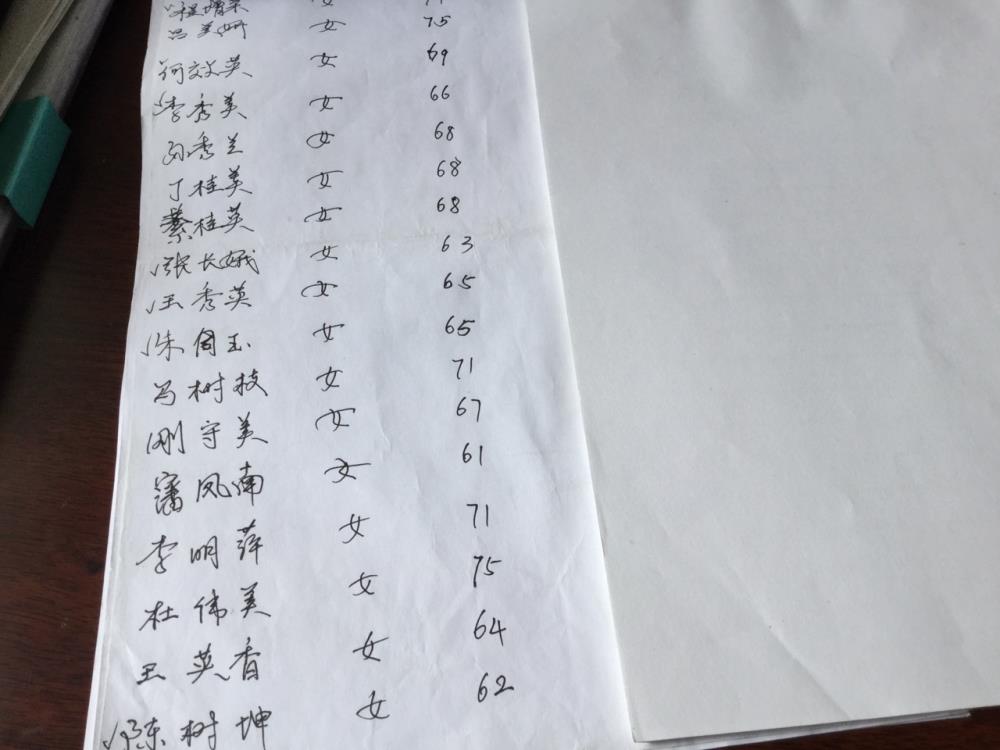 女 71
吕美妍 女 75
何效英 女 69
√李秀美 女 66
孙秀兰 女 68
丁桂美 女 68
綦桂英 女 68
√张长娥 女 63
√王秀英 女 65
√朱周玉 女 65
冯树枝 女 71
刚守美 女 67
凤南 女 61
李明萍 女 71
杜伟美 女 75
王英香 女 64
√陈树坤 女 62